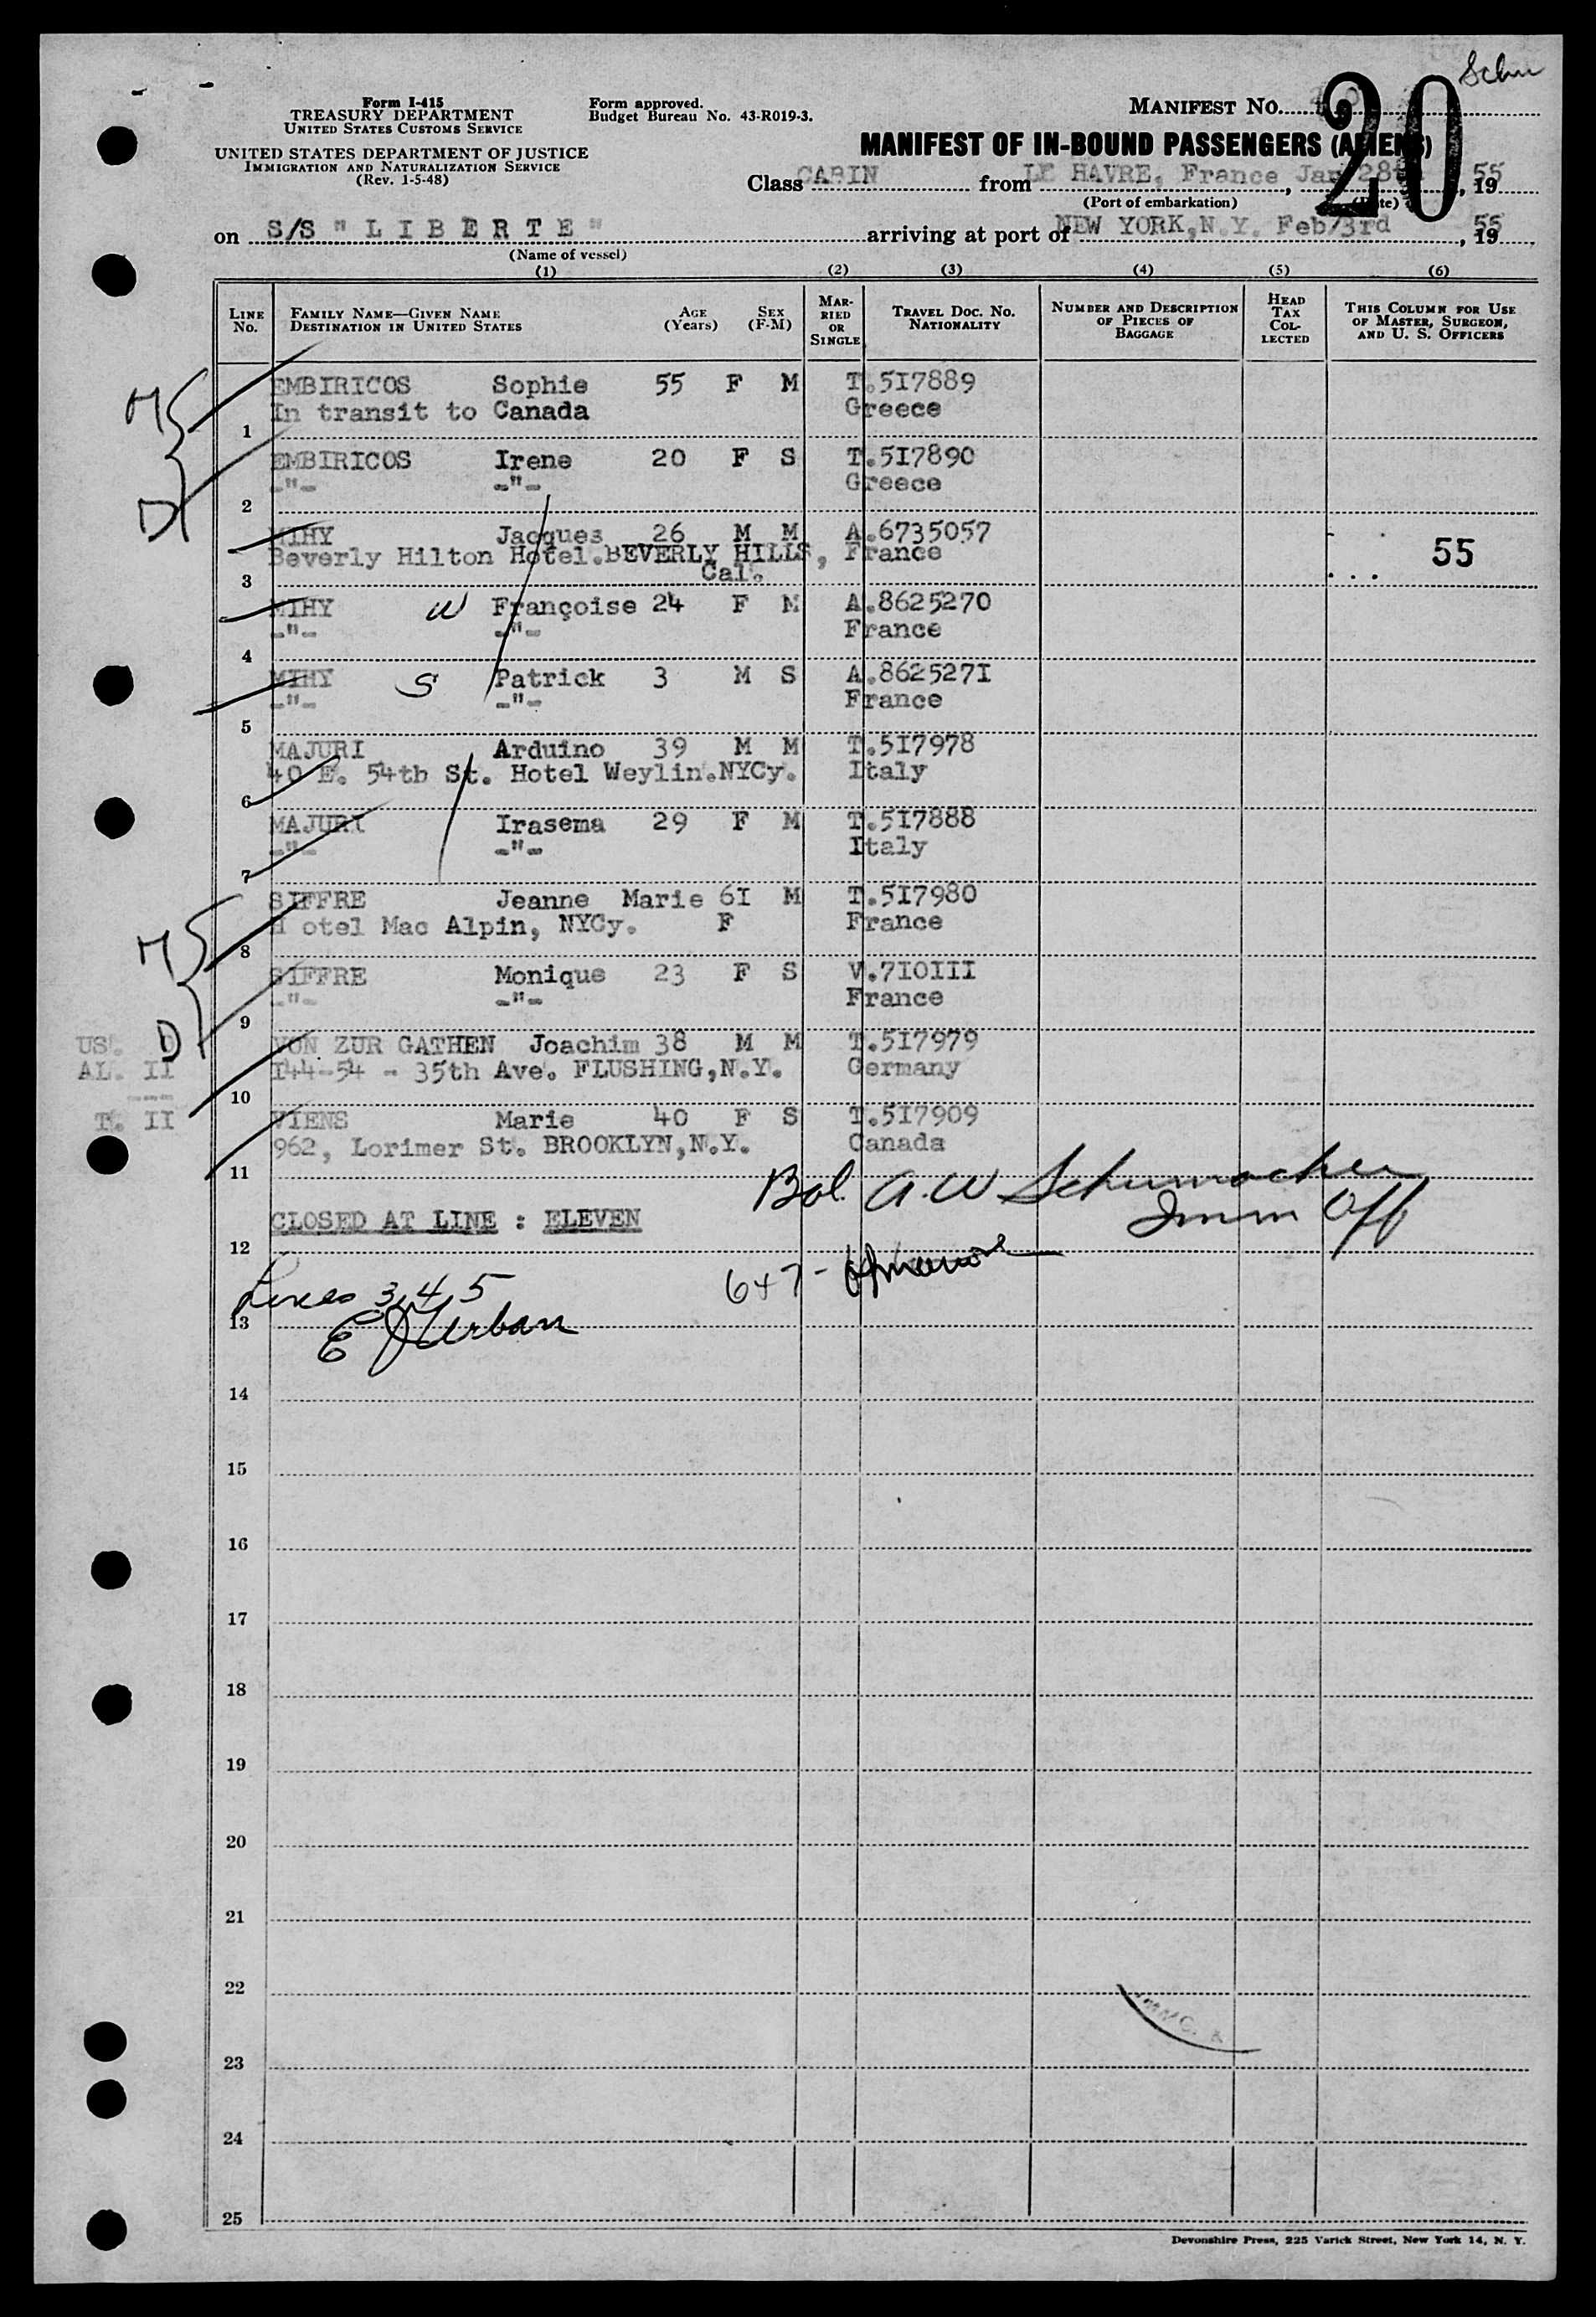 Schu
Form I-415
TREASURY DEPARTMENT
UNITED STATES CUSTOMS SERVICE
UNITED STATES DEPARTMENT OF JUSTICE
IMMIGRATION AND NATURALIZATION SERVICE
(Rev. 1-5-48)
Form approved.
Budget Bureau No. 43-R019-3.
MANIFEST NO.
20
MANIFEST OF IN-BOUND PASSENGERS (ALIENS)
Class CABIN from LE HAVRE, France Jan 28th, 1955
(Port of embarkation) (Date)
on S/S "LIBERTE" arriving at port of NEW YORK,N.Y. Feb/3rd, 1955
(Name of vessel)
(1) (2) (3) (4) (5) (6)
LINE No. FAMILY NAME—GIVEN NAME DESTINATION IN UNITED STATES AGE (Years) SEX (F-M) MARRIED OR SINGLE TRAVEL DOC. NO. NATIONALITY NUMBER AND DESCRIPTION OF PIECES OF BAGGAGE HEAD TAX COLLECTED THIS COLUMN FOR USE OF MASTER, SURGEON, AND U. S. OFFICERS
M EMBIRICOS Sophie 55 F M T.5I7889
In transit to Canada Greece
1
EMBIRICOS Irene 20 F S T.5I7890
D -"- -"- Greece
2
MIHY Jacques 26 M M A.6735057
Beverly Hilton Hotel.BEVERLY HILLS, France 55
Cal.
3
MIHY W Françoise 24 F M A.8625270
-"- -"- France
4
MIHY S Patrick 3 M S A.862527I
-"- -"- France
5
MAJURI Arduino 39 M M T.5I7978
40 E. 54th St. Hotel Weylin.NYCy. Italy
6
MAJURI Irasema 29 F M T.5I7888
-"- -"- Italy
7
SIFFRE Jeanne Marie 6I M T.5I7980
H otel Mac Alpin, NYCy. F France
M 8
SIFFRE Monique 23 F S V.7IOIII
-"- -"- France
9
US. D VON ZUR GATHEN Joachim 38 M M T.5I7979
AL. II I44-54 - 35th Ave. FLUSHING,N.Y. Germany
10
T. II VIENS Marie 40 F S T.5I7909
962, Lorimer St. BROOKLYN,N.Y. Canada
11
Bal. A.W Schumacher
Imm Off
CLOSED AT LINE : ELEVEN
12
Lines 3,4,5
6+7-
13
E J Urban
14
15
16
17
18
19
20
21
22
23
24
25
Devonshire Press, 225 Varick Street, New York 14, N. Y.